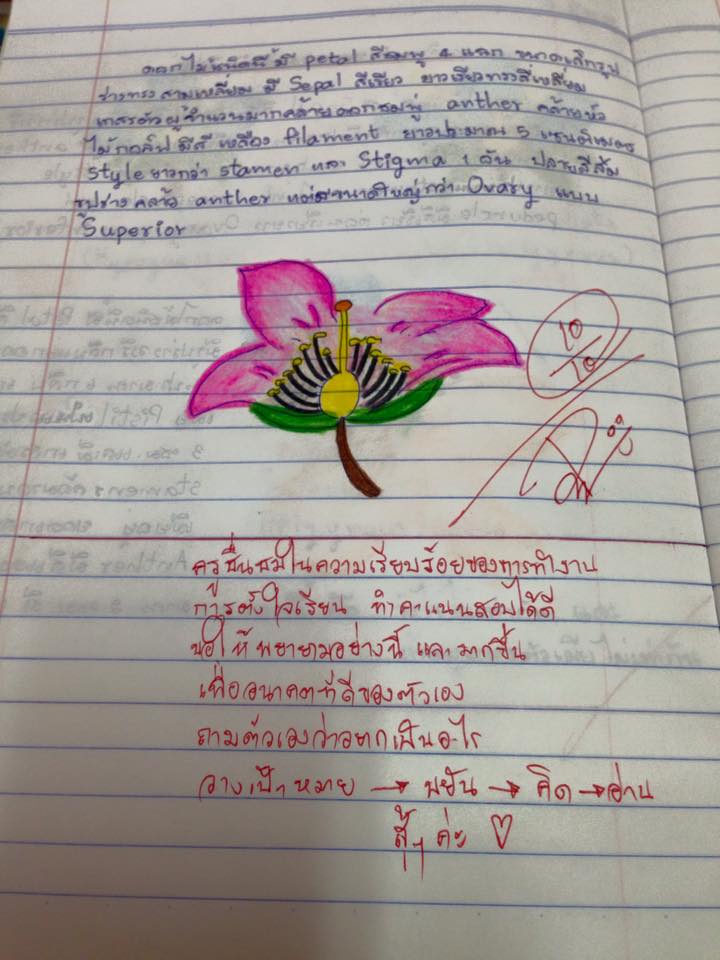 ดอกไม้ชนิดนี้ มี petal สีชมพู 4 แฉก ขนาดเล็กรูป
ร่างทรงสามเหลี่ยม มี Sepal สีเขียว ยาวเรียวทรงสี่เหลี่ยม
เกสรตัวผู้จำนวนมากคล้ายดอกชมพู่ anther คล้ายหัว
ไม้กอล์ฟ มีสีเหลือง filament ยาวประมาณ 5 เซนติเมตร
style ยาวกว่า stamen และ Stigma 1 อัน ปลายสีส้ม
รูปร่างคล้าย anther แต่ขนาดใหญ่กว่า Ovary แบบ
Superior
10
10
ครูชื่นชมในความเรียบร้อยของการทำงาน
การตั้งใจเรียน ทำคะแนนสอบได้ดี
ขอให้พยายามอย่างนี้ และมากขึ้น
เพื่ออนาคตที่ดีของตัวเอง
ถามตัวเองว่าอยากเป็นอะไร
วางเป้าหมาย → ขยัน → คิด → อ่าน
สู้ๆ ค่ะ ♡